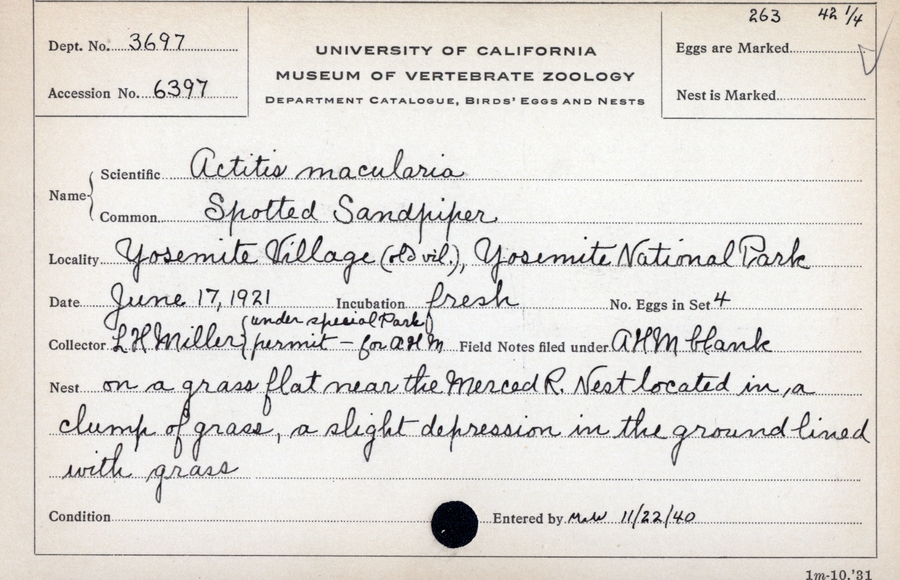 263 42 1/4
Dept. No. 3697
UNIVERSITY OF CALIFORNIA
MUSEUM OF VERTEBRATE ZOOLOGY
DEPARTMENT CATALOGUE, BIRDS' EGGS AND NESTS
Eggs are Marked
Accession No. 6397
Nest is Marked
Name Scientific Actitis macularia
Common Spotted Sandpiper
Locality Yosemite Village (old vil.), Yosemite National Park
Date June 17, 1921 Incubation fresh No. Eggs in Set 4
(under special Park
Collector L H Miller permit – for AHM) Field Notes filed under AHM blank
Nest on a grass flat near the Merced R. Nest located in a
clump of grass, a slight depression in the ground lined
with grass
Condition Entered by 11/22/40
1m-10,'31